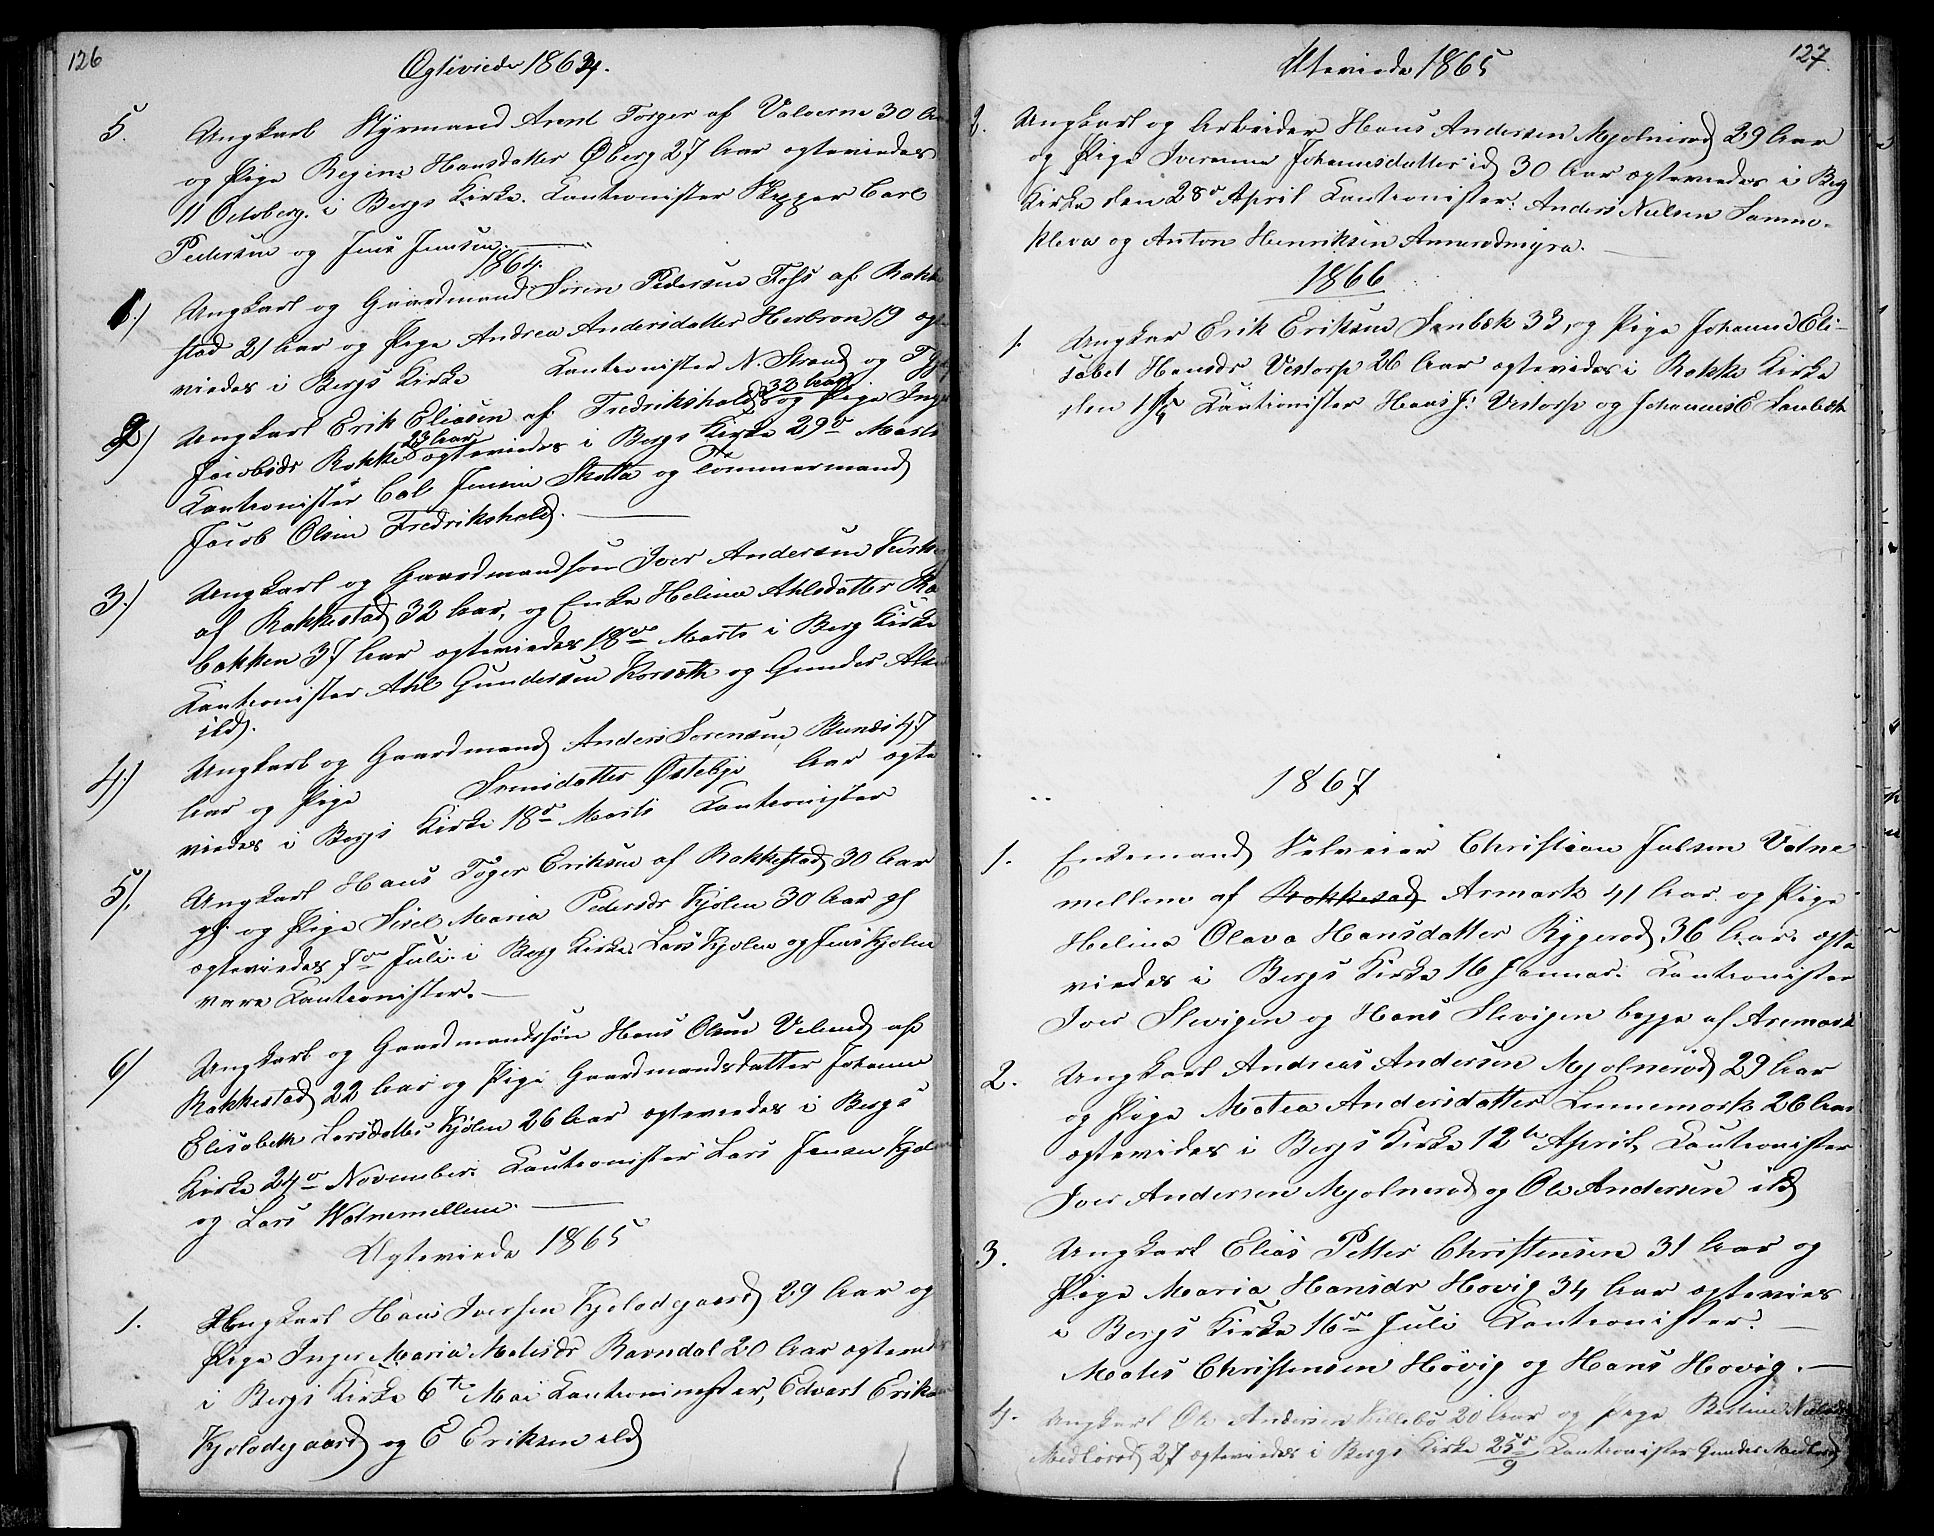 126
Ogteviede 1864.
5. Ungkarl Styrmand Arent Torger af Valoerne 30 Aar
og Pige Regine Hansdatter Øberg 27 Aar ogteviedes
11 Octoberg. i Bergs Kirke. Cautionister Skipper Carl
Pedersen og Jens Jensen.
1864.
1.) Ungkarl og Gaardmand Søren Pedersen Foss af Rakke
stad 21 Aar og Pige Andrea Andersdatter Herbron 19 ogte
viedes i Bergs Kirke Cautionister N. Strand og
2) Ungkarl Erik Eliasen af Fredrikshald 32 Aar og Pige Inge
Jacobsdr Rokke 23 Aar ogteviedes i Bergs Kirke 29de Marts
Cautionister Jensen Skotta og Tømmermand
Jacob Olsen Fredrikshald.
3.) Ungkarl og Gaardmandsøn Iver Andersen
af Rakkestad 32 Aar, og Enke Helena Ahlsdatter
bakken 37 Aar ogteviedes 18de Marts i Berg Kirke
Cautionister Ahl Gundersen Korsæth og Gunder
ibd.
4.) Ungkarl og Gaardmand Anders Sorensen Bunæs 47
Aar og Pige Svensdatter Østebye Aar ogte
viedes i Bergs Kirke 18de Marts Cautionister
5). Ungkarl Hans Toger Eriksen af Rakkestad 30 Aar
gl. og Pige Sisel Maria Pedersdr Kjølen 30 Aar gl
ogteviedes 7de Juli i Berg Kirke Lars Kjølen og Jens Kjølen
vare Cautionister.
6) Ungkarl og Gaardmandssøn Hans Olsen Velund af
Rakkestad 22 Aar og Pige Gaardmandsdatter Johanne
Elisabeth Larsdatter Kjølen 26 Aar ogteviedes i Bergs
Kirke 24de November. Cautionister Lars Jensen Kjølen
og Lars Watnemellem.
Ogteviede 1865
1. Ungkarl Hans Iversen Kjolodegaard 29 Aar og
Pige Inger Maria Matisdr Ravndal 20 Aar ogtevied
i Bergs Kirke 6te Mai Cautionister, Edvart Eriksen
Kjolodegaard og E Eriksen ibd
127.
Ogteviede 1865
2. Ungkarl og Arbeider Hans Andersen Mjolnerod 29 Aar
og Pige Iverinne Johannesdatter ibd 30 Aar ogteviedes i Berg
Kirke den 28de April Cautionister: Anders Nielsen Samme-
kleva og Anton Henriksen Annerødmyra.
1866
1. Ungkar Erik Eriksen Senbek 33, og Pige Johanne Eli-
sabet Hansdr Vestorp 26 Aar ogtevides i Rokke Kirke
den Cautionister Hans J. Vestorp og Johannes E Senbek
1867
1. Enkemand Selveier Christian Julsen Vatne
mellem af Rakkestad Aremark 41 Aar og Pige
Helina Olava Hansdatter Rygerød 36 Aar ogte
viedes i Bergs Kirke 16 Januar. Cautionister
Iver Slevigen og Hans Slevigen begge af Aremark
2. Ungkarl Andreas Andersen Mjolnerød 29 Aar
og Pige Matea Andersdatter Lunnemork 26 Aar
ogtevides i Bergs Kirke 12te April, Cautionister
Iver Andersen Mjolnerød og Ole Andersen ibd
3. Ungkarl Elias Petter Christensen 31 Aar og
Pige Maria Hansdr Hovig 34 Aar ogtevies
i Bergs Kirke 16de Juli Cautionister.
Mates Christensen Høvig og Hans Hovig.
4. Ungkarl Ole Andersen Killebo 20 Aar og Pige Bestine Nielsdr
Medlørød 27 ogteviedes i Bergs Kirke 25de/9 Cautionister Gunder Medlørød